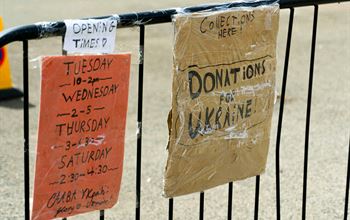 OPENING
TIMES!
TUESDAY
10-2pm
WEDNESDAY
2-5
THURSDAY
3-6:30
SATURDAY
2:30-4:30
COLLECTIONS
HERE
DONATIONS
FOR
UKRAINE